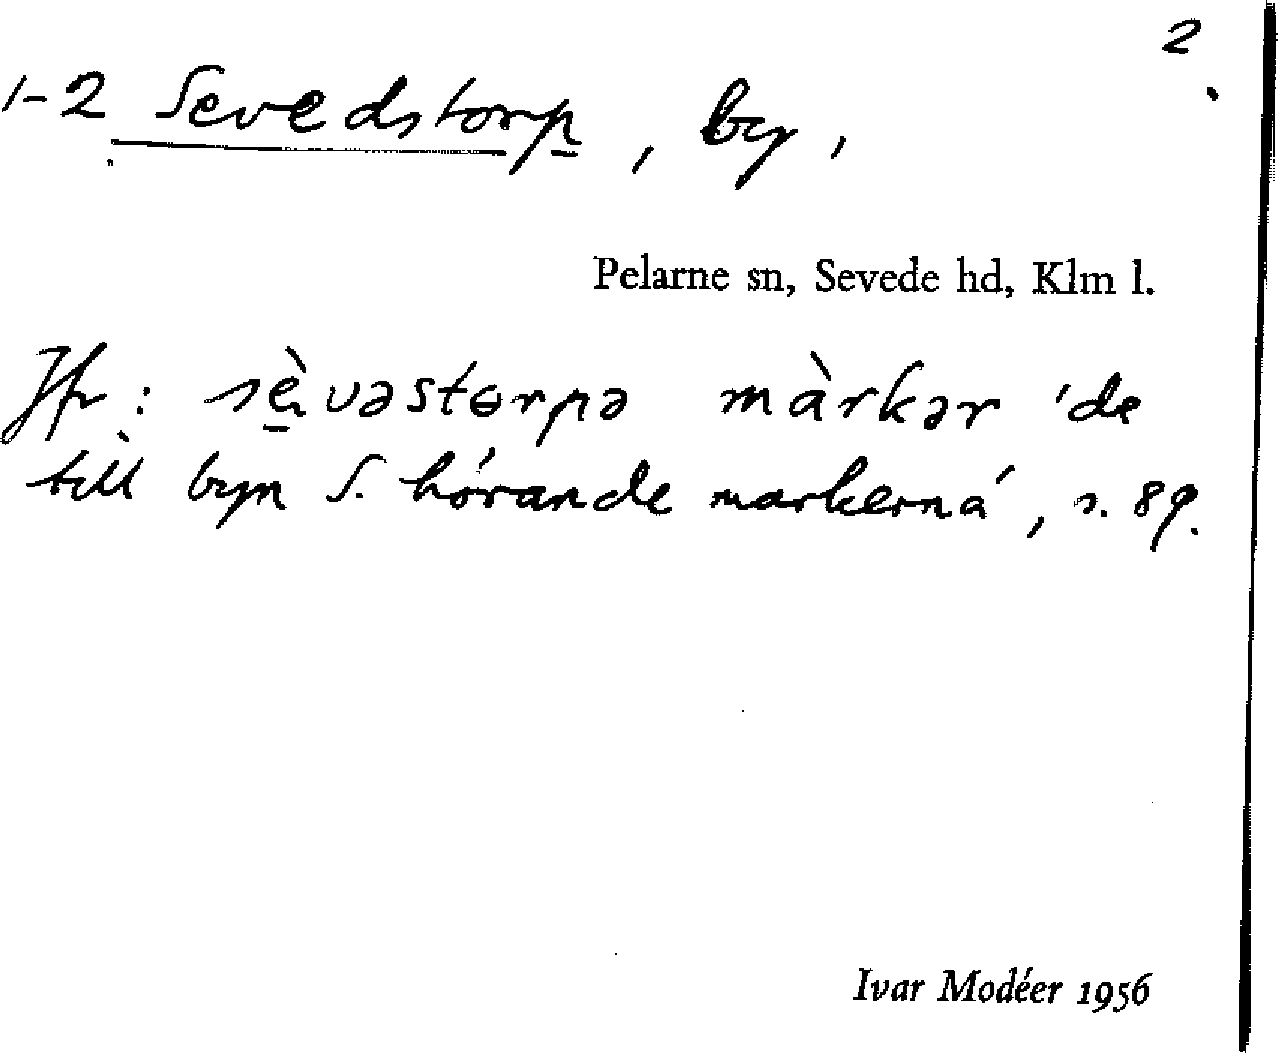 2
1-2 Sevedstorp, by,
Pelarne sn, Sevede hd, Klm l.
Jfr: sè̱vəstɵrpə màrkər 'de
till byn S. hörande markerna', s. 89.
Ivar Modéer 1956